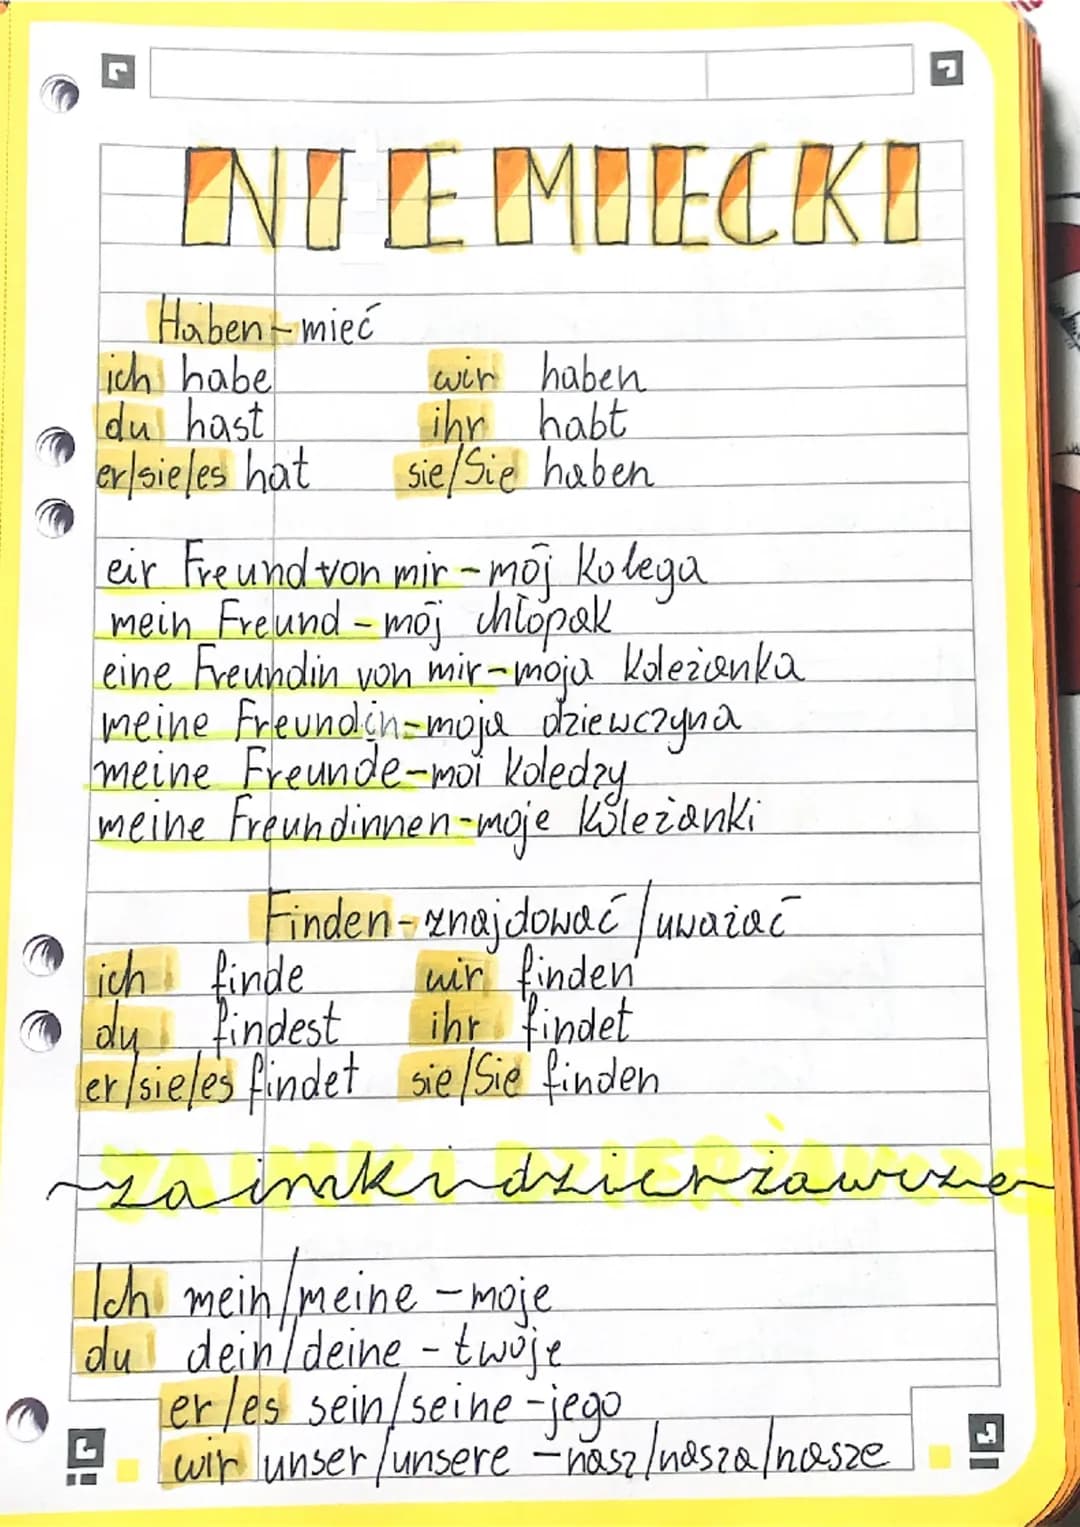 NIEMIECKI
Haben - mieć
ich habe wir haben
du hast ihr habt
er/sie/es hat sie/Sie haben
eir Freund von mir - mój kolega
mein Freund - mój chłopak
eine Freundin von mir - moja koleżanka
meine Freundin - moja dziewczyna
meine Freunde - moi koledzy
meine Freundinnen - moje koleżanki
Finden - znajdować / uważać
ich finde wir finden
du findest ihr findet
er/sie/es findet sie/Sie finden
~zaimki dzierżawcze~
Ich mein/meine - moje
du dein/deine - twoje
er/es sein/seine - jego
wir unser/unsere - nasz/nasza/nasze